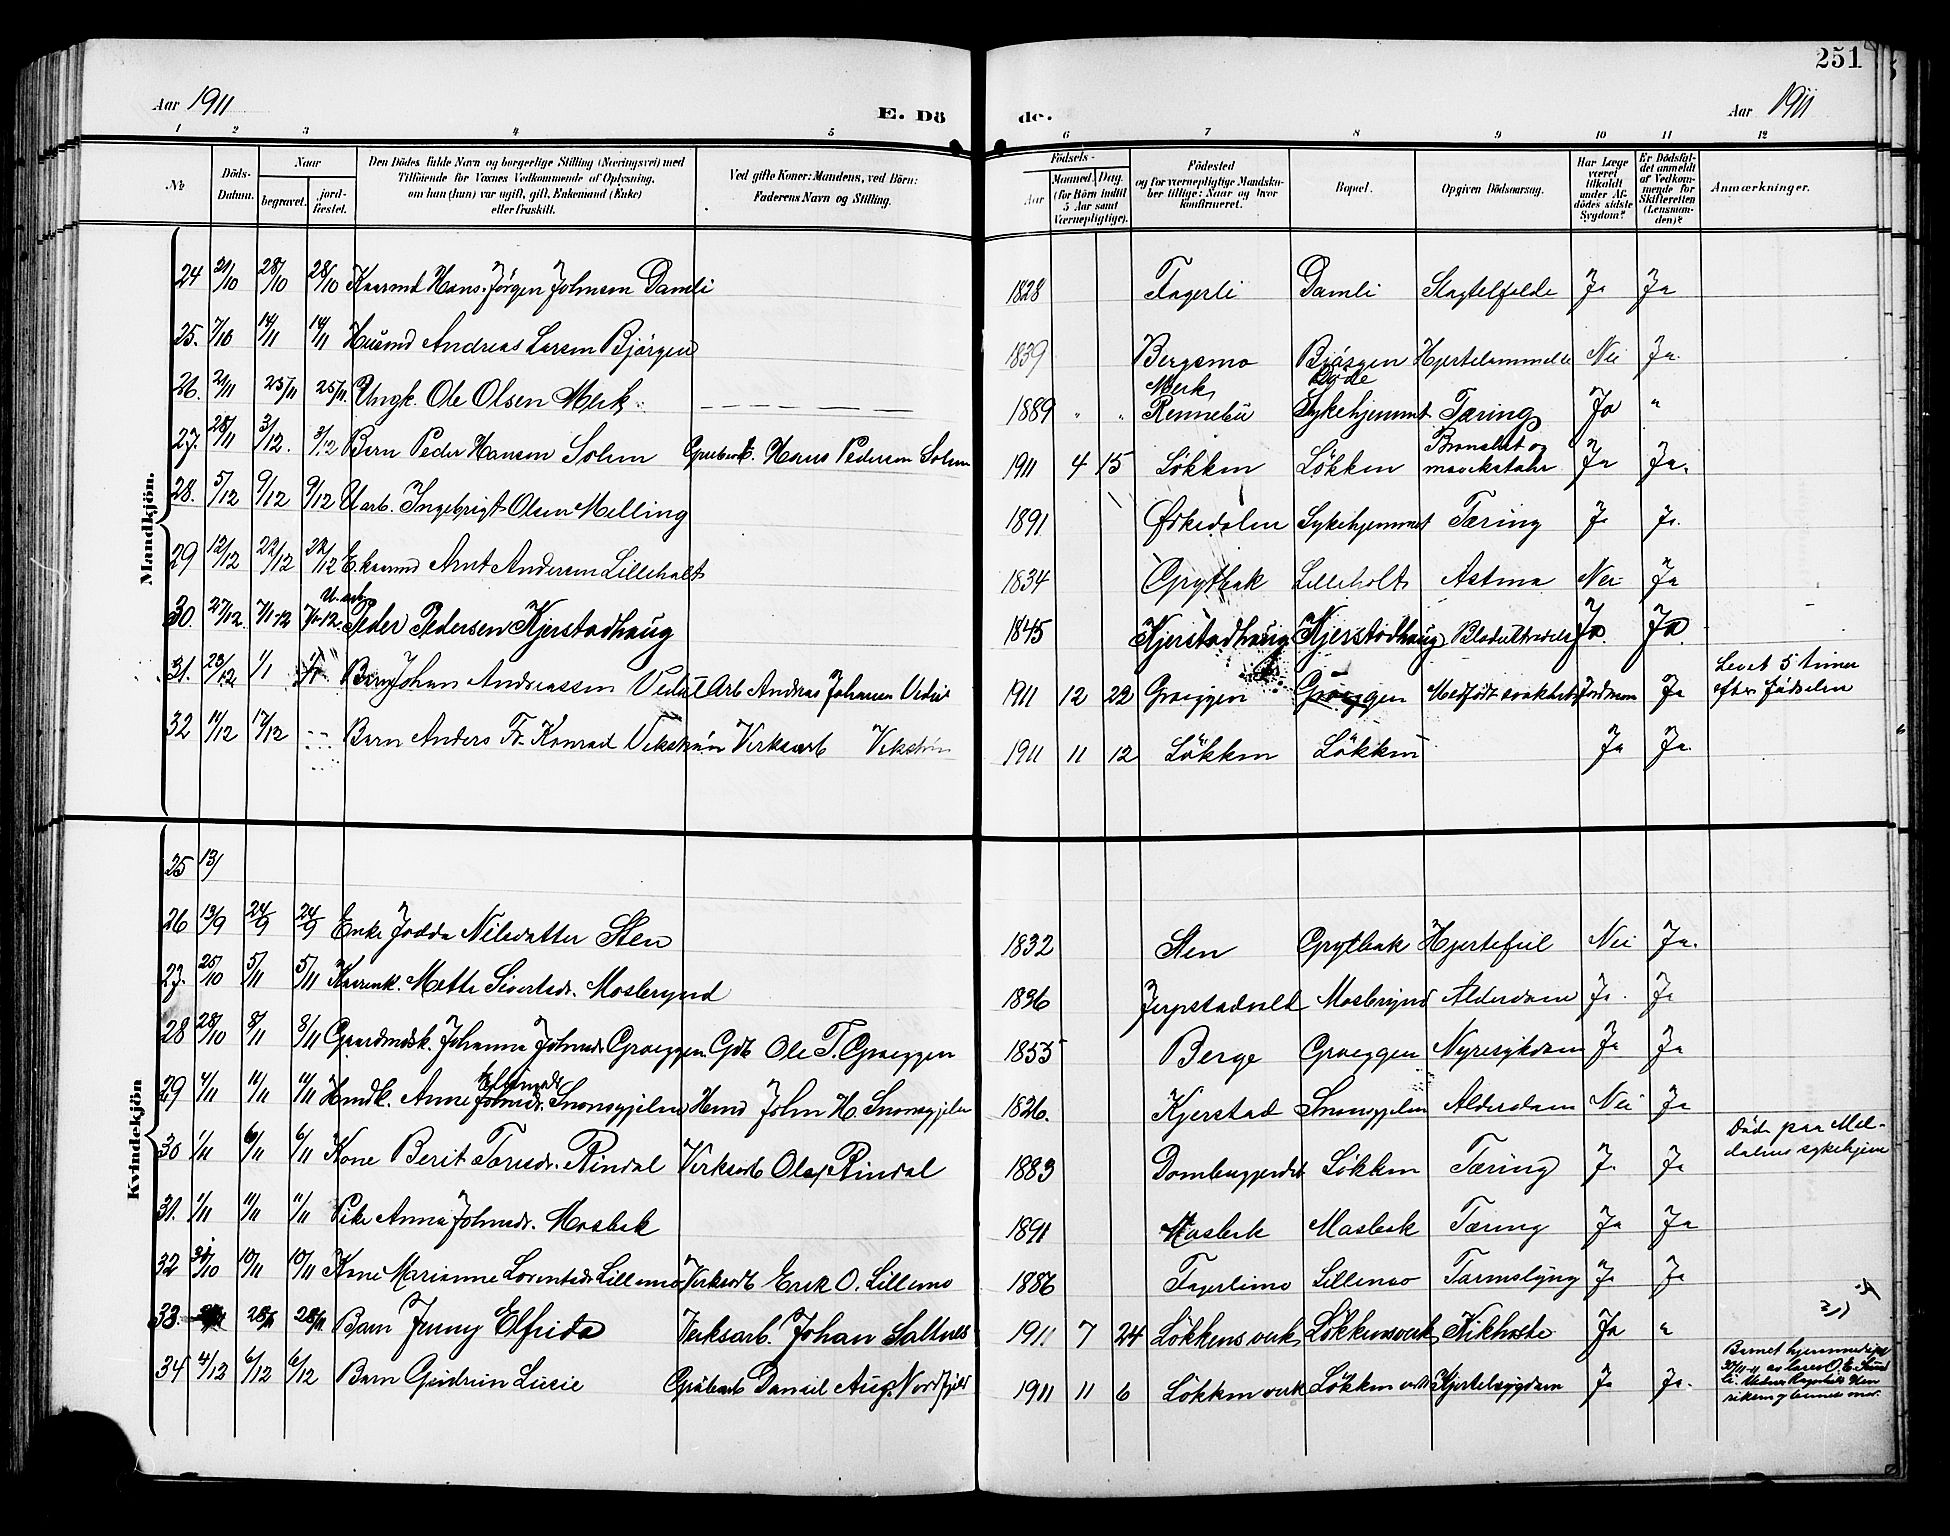 251
Aar 1911
E. Dö
de.
Aar 1911
1 2 3 4 5 6 7 8 9 10 11 12
№
Döds-Datum.
Naar
begravet.
jordfæstet.
Den Dödes fulde Navn og borgerlige Stilling (Næringsvei) med
Tilföiende for Voxnes Vedkommende af Oplysning,
om han (hun) var ugift, gift, Enkemand (Enke)
eller fraskilt.
Ved gifte Koner: Mandens, ved Börn:
Faderens Navn og Stilling.
Födsels-
Aar
Maaned. Dag.
(for Börn indtil
5 Aar samt
Værnepligtige).
Födested
og for værnepligtige Mandskaber tillige: Naar og hvor
konfirmeret.
Bopæl.
Opgiven Dödsaarsag.
Har Læge
været
tilkaldt
under Afdödes sidste
Sygdom?
Er Dödsfaldet anmeldt
af Vedkommende for
Skifteretten
(Lensmanden)?
Anmærkninger.
Mandkjön.
24 21/10 28/10 28/10 Kaarmd Hans Jørgen Johnsen Damli 1828 Fagerli Damli Slagtelfælde Ja Ja
25. 7/10 14/11 14/11 Husmd Andreas Larsen Bjørgen 1839 Bergsmo Bjørgen Hjertelammelse Nei Ja
26. 21/11 25/11 25/11 Ungk. Ole Olsen Merk 1889 " " Merk Rennebu Sykehjemmet Tæring Ja "
27. 28/11 3/12. 3/12 Barn Peder Hansen Solem Grubearb. Hans Pedersen Solem 1911 4 15 Løkken Løkken Bronchit og mavekatar Ja Ja.
28. 5/12 9/12 9/12 U arb. Ingebrigt Olsen Melling 1891 Ørkedalen Sykehjemmet Tæring Ja Ja.
29 12/12 22/12 22/12 E kaarmd Arnt Andersen Lilleholt 1834 Grytbak Lilleholt Astma Nei Ja
30 27/12. 7/1-12 7/1-12. U. arb. Peder Pedersen Kjerstadhaug 1845 Kjerstadhaug Kjerstadhaug Ja. Ja.
31. 23/12 1/1 Barn Johan Andreassen Arb Andreas Johansen 1911 12 22 Græggen Græggen Medfødt svakhet Jordmor Ja Levet 5 timer
efter fødselen
32 14/12 17/12 -- Barn Anders Fr. Konrad Vikstrøm Verksarb Vikstrøm 1911 11 12 Løkken Løkken Ja Ja.
Kvindekjön
25 13/
26 13/9 24/9 24/9 Enke Jodda Nilsdatter Sten 1832 Sten Grytbak Hjertefeil Nei Ja.
27. 25/10 5/11 5/11 Kaarenk. Mette Sivertsdr. Mosbrynd 1836 Jerpstadvold Mosbrynd Alderdom Ja. Ja
28 28/10 8/11 8/11 Gaardmdsk. Johanna Johnsdr. Græggen. Gdb Ole T. Græggen 1855 Berge Græggen Nyresykdom Ja Ja
29 4/11 11/11 11/11 Hmdk. Anne Johnsdr. Snonsgjelen Hmd John H. Snonsgjelen 1826. Kjerstad Snonsgjelen Alderdom Nei Ja
30 1/11 6/11 6/11 Kone Berit Toresdr. Rindal Verksarb Ola Rindal 1883 Løkken Tæring Ja Ja Død paa Meldalens sykehjem
31. 1/11 11/11 11/11 Pike Anna Johnsdr. Mosbak 1891 Mosbak Mosbak Tæring Ja Ja
32 31/10 10/11 10/11 Kone Marianne Lorentsdr. Lillemo Verksarb Erik O. Lillemo 1886 Fagerlimo Lillemo Tarmslyng Ja Ja
33. 28/11 28/11 Barn Jenny Elfrida Verksarb. Johan Saltnes 1911. 7 24 Løkkens verk Løkkens verk Kikhoste Ja "
34 4/12 6/12 6/12 Barn Gudrun Lucie Grubearb Daniel Aug. Nordfjeld 1911 11 6 Løkken verk Løkken verk Kjertelsygdom Ja Ja. Barnet hjemmedøpt
30/11-11 av lærer O. E.